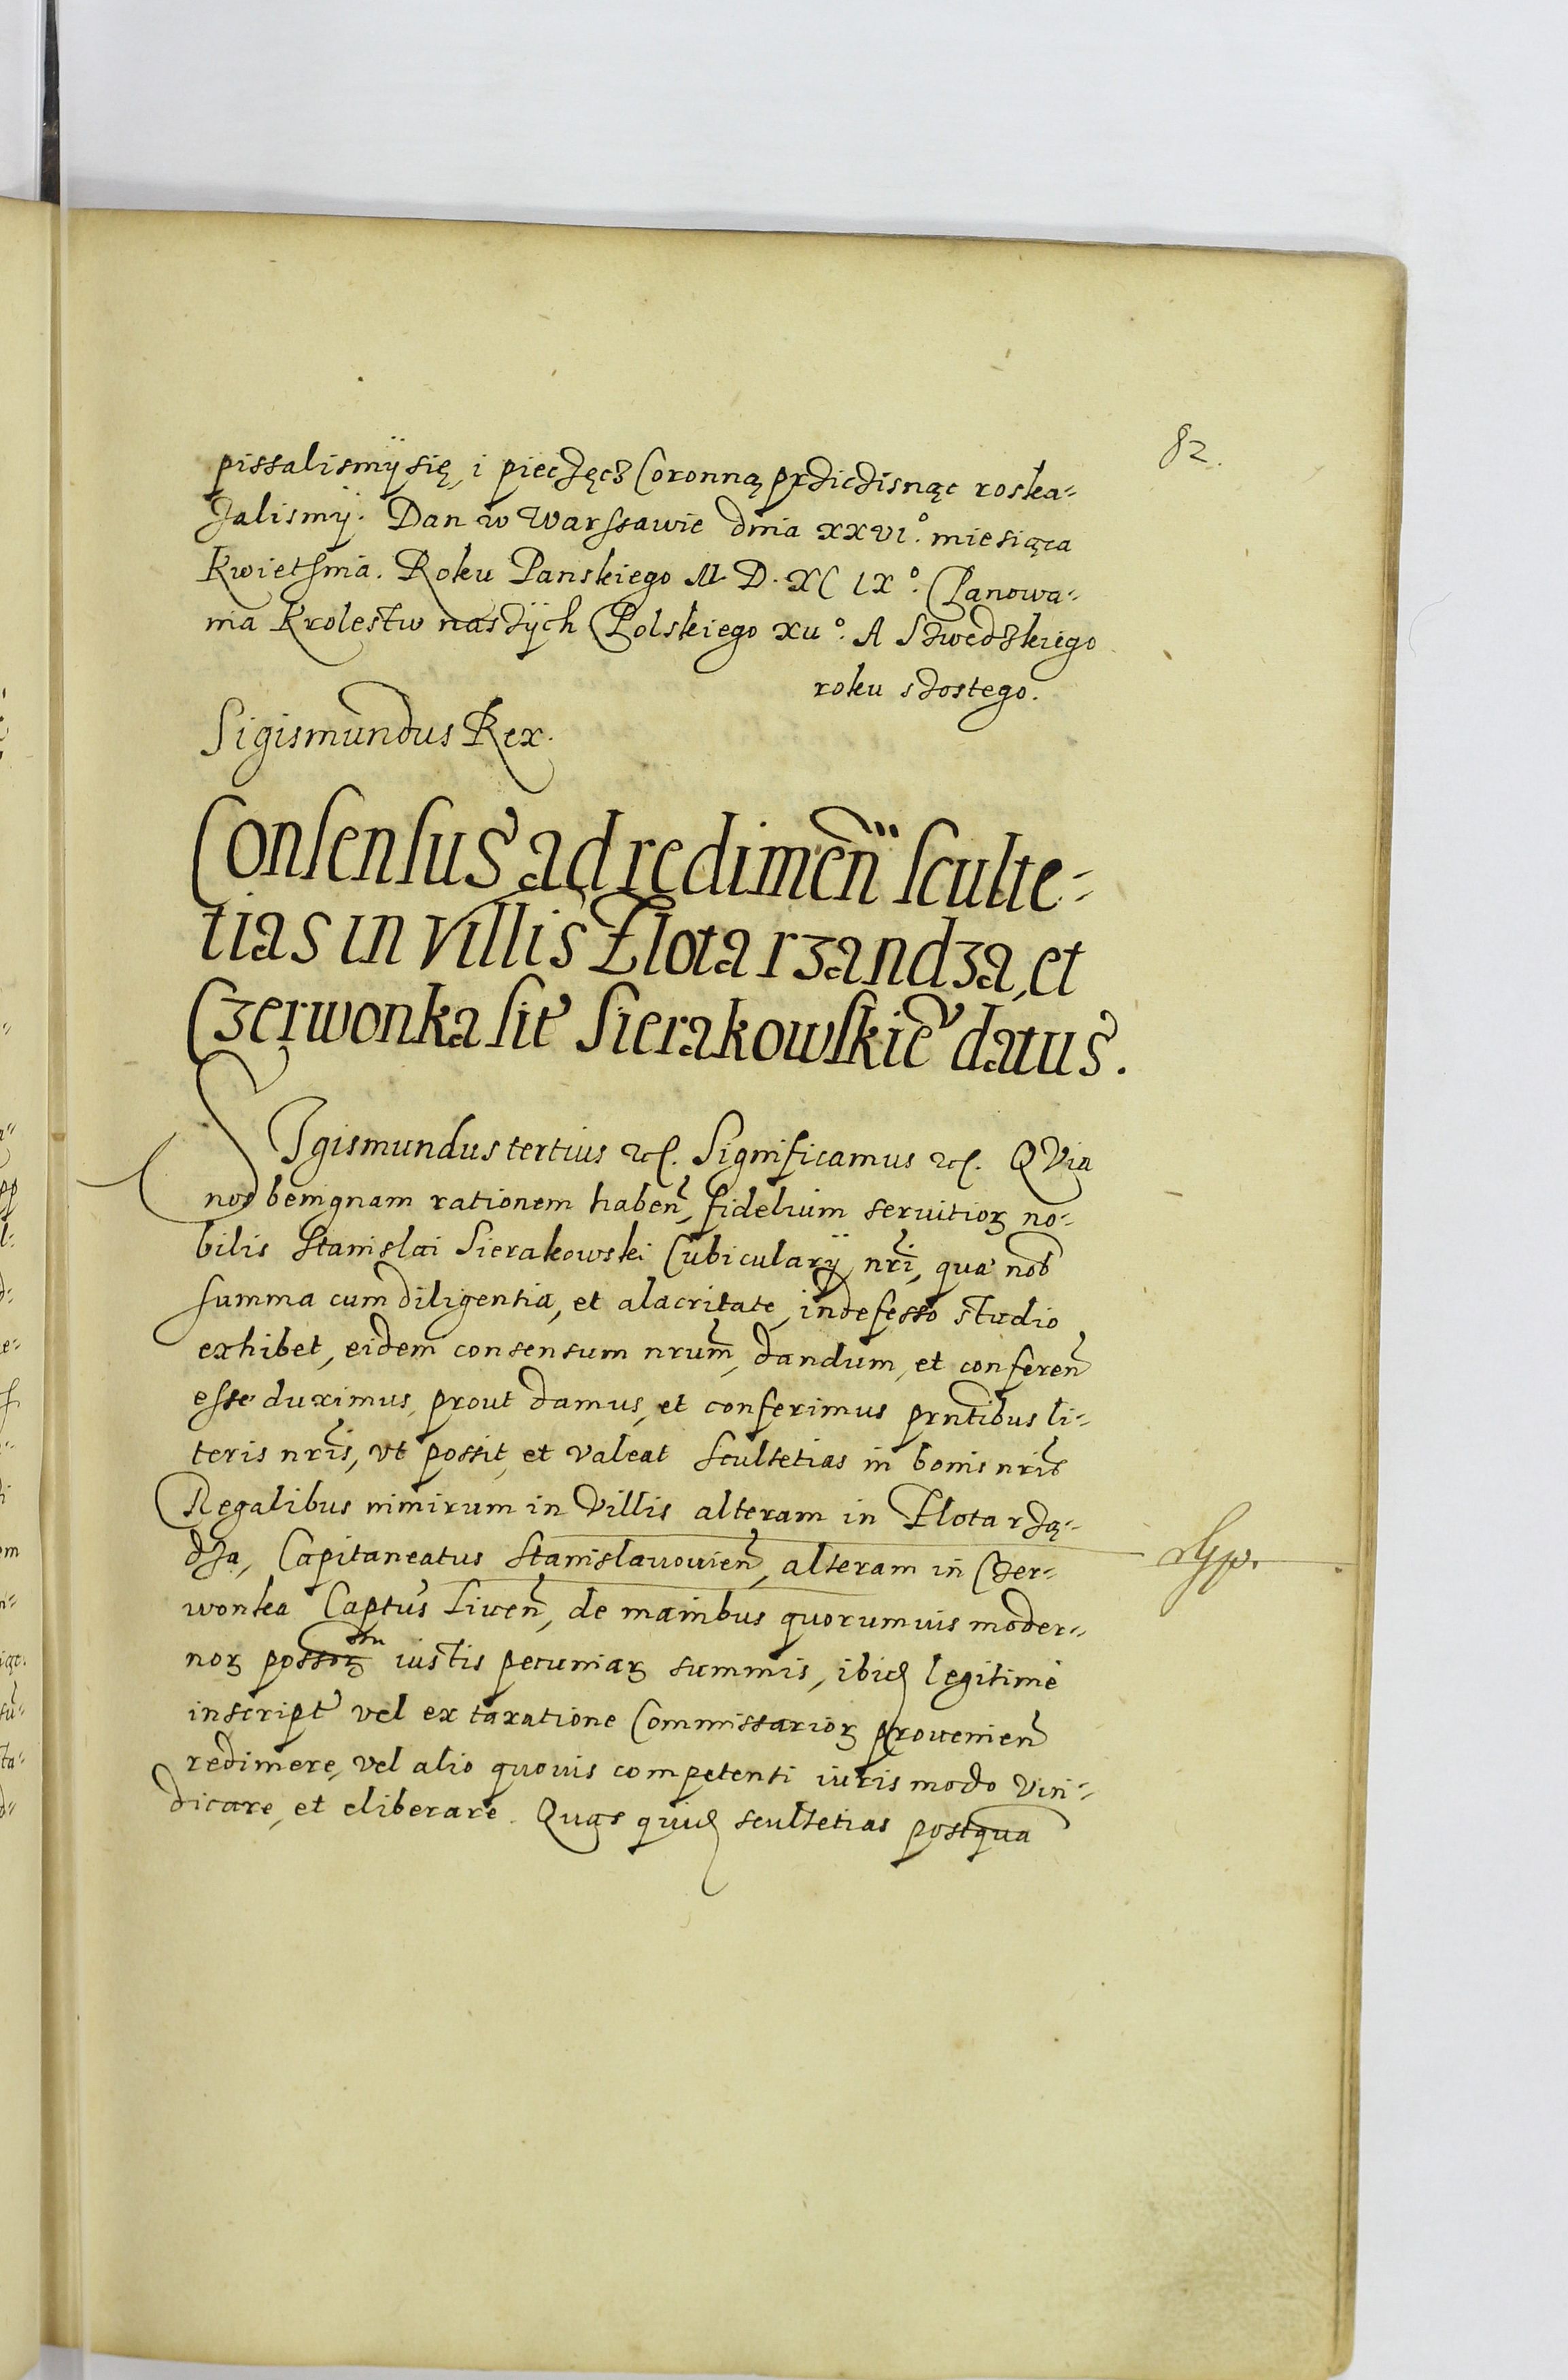 82.
pissalismÿ się, i pieczęcz Coronną prziczisnąc roska-
zalismÿ. Dan w Warssawie dnia XXVI°. miesiąca
Kwietnia. Roku Panskiego M. D. XCIX°. Panowa-
nia Krolestw naszÿch Polskiego XII°. A Szwedzkiego
roku szostego.
Sigismundus Rex.
Consensus ad redimen sculte-
tias in villis Złota rzandza, et
Czerwonka sit Sierakowskie datus.
SIgismundus tertius etc. Significamus etc. QVia
nos benignam rationem haben, fidelium seruitiorꝫ no-
bilis Stanislai Sierakowski Cubicularÿ nri, qua nob
summa cum diligentia, et alacritate, indefesso studio
exhibet, eidem consensum nrum, dandum, et conferen
esse duximus, prout damus, et conferimus prntibus li-
teris nris, vt possit, et valeat scultetias in bonis nris
Regalibus nimirum in Villis alteram in Złota rzą-
dza, Capitaneatus Stanislauouien, alteram in Czer-
wonka Captus Liuen, de manibus quorumuis moder-
norꝫ possorꝫ iustis pecuniarꝫ summis, ibid legitime
inscript vel ex taxatione Commissariorꝫ prouenien
redimere, vel alio quouis competenti iuris modo vin-
dicare, et eliberare. Quas quid scultetias postqua